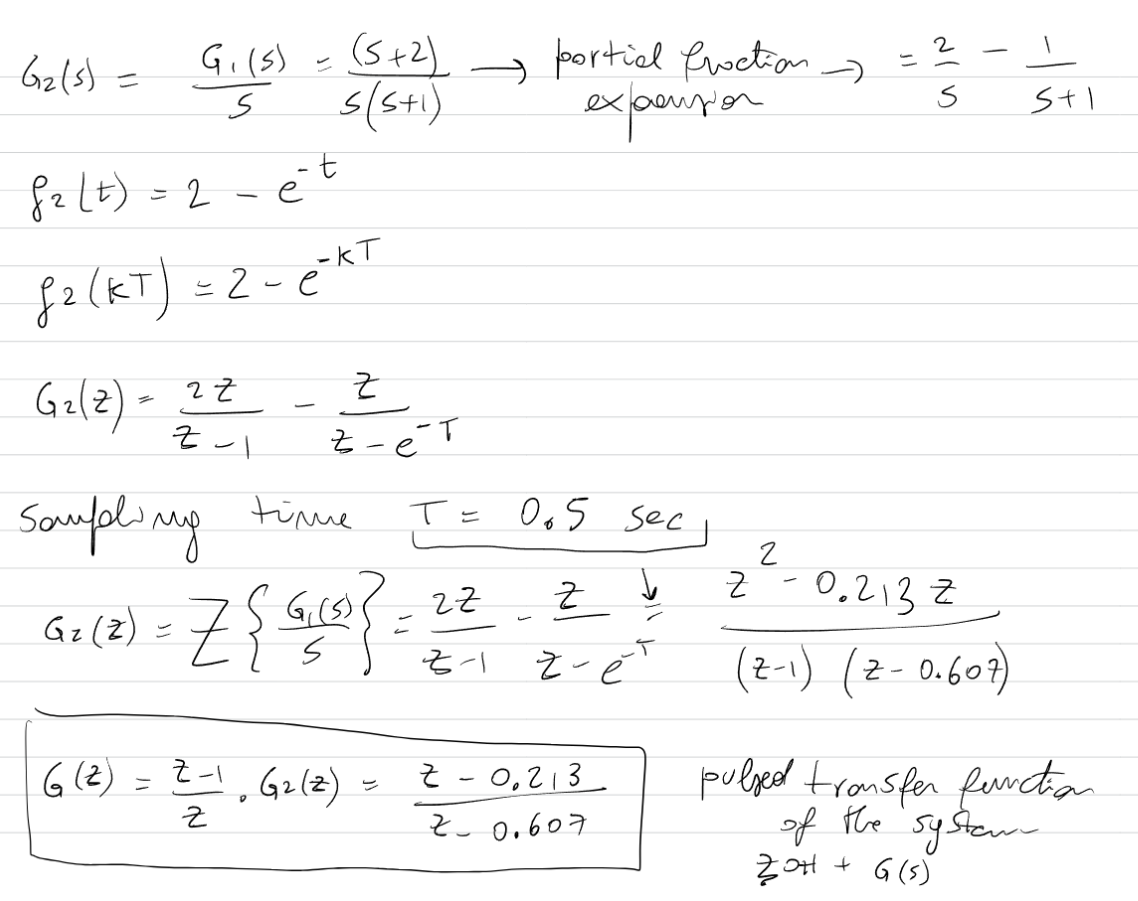 G₂(s) = G₁(s)/s = (s+2)/(s(s+1)) → partial fraction expansion → = 2/s − 1/(s+1)
f₂(t) = 2 − e^(−t)
f₂(kT) = 2 − e^(−kT)
G₂(z) = 2z/(z−1) − z/(z−e^(−T))
Sampling time T = 0.5 sec
G₂(z) = Z{G₁(s)/s} = 2z/(z−1) − z/(z−e^(−T)) ↓= (z² − 0.213z)/((z−1)(z−0.607))
G(z) = (z−1)/z . G₂(z) = (z − 0.213)/(z − 0.607)
pulsed transfer function
of the system
ZOH + G(s)